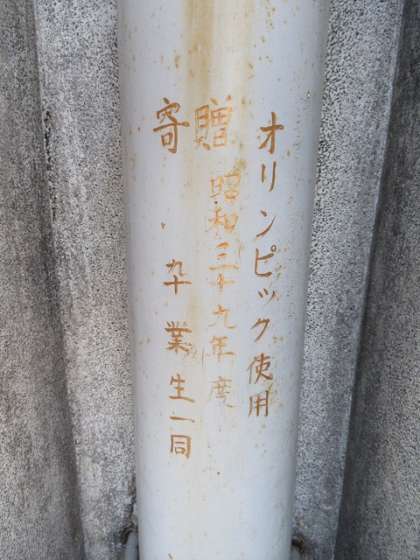 オリンピック使用
贈
昭和三十九年度
寄
卆業生一同